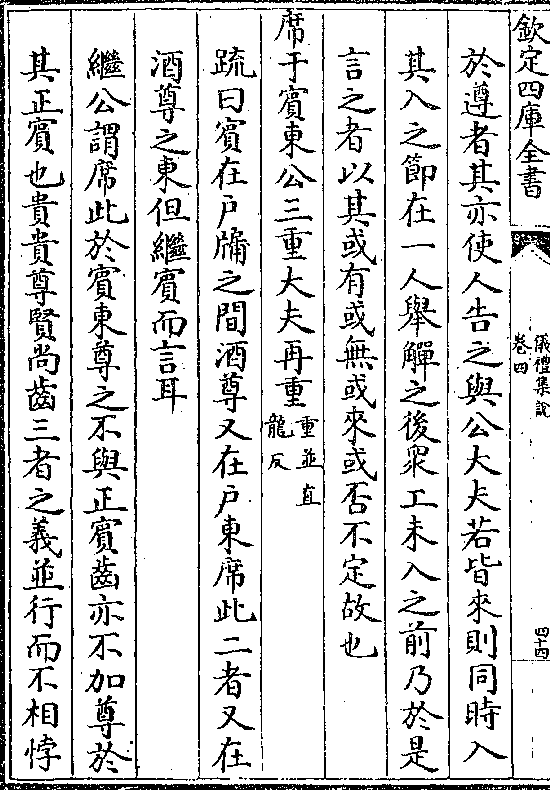 欽定四庫全書
儀禮集說
卷四
四十四
於遵者其亦使人告之與公大夫若皆來則同時入
其入之節在一人舉觶之後衆工未入之前乃於是
言之者以其或有或無或來或否不定故也
席于賓東公三重大夫再重
重並直
龍反
疏曰賓在戶牖之間酒尊又在戶東席此二者又在
酒尊之東但繼賓而言耳
繼公謂席此於賓東尊之不與正賓齒亦不加尊於
其正賓也貴貴尊賢尚齒三者之義並行而不相悖